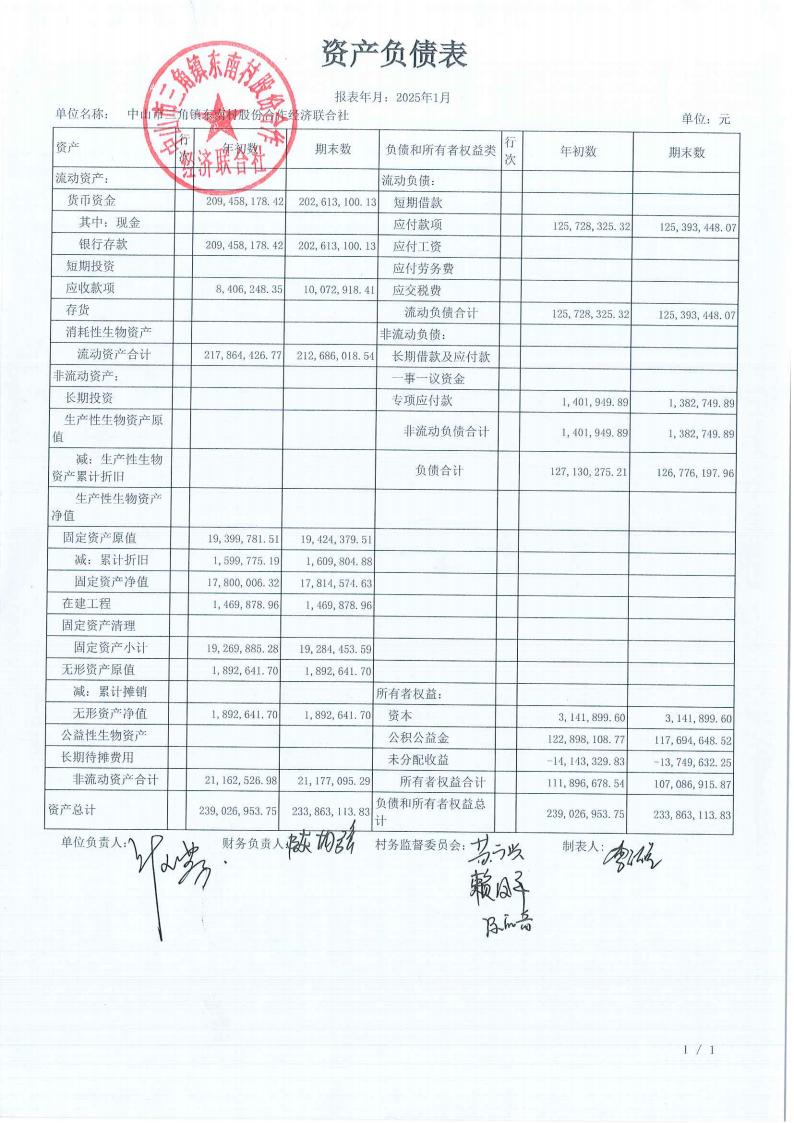 资产负债表
报表年月：2025年1月
单位名称： 中山市三角镇东南村股份合作经济联合社 单位：元
中山市三角镇东南村股份合作
经济联合社
资产 行次 年初数 期末数 负债和所有者权益类 行次 年初数 期末数
流动资产： 流动负债：
货币资金 209,458,178.42 202,613,100.13 短期借款
其中：现金 应付款项 125,728,325.32 125,393,448.07
银行存款 209,458,178.42 202,613,100.13 应付工资
短期投资 应付劳务费
应收款项 8,406,248.35 10,072,918.41 应交税费
存货 流动负债合计 125,728,325.32 125,393,448.07
消耗性生物资产 非流动负债：
流动资产合计 217,864,426.77 212,686,018.54 长期借款及应付款
非流动资产： 一事一议资金
长期投资 专项应付款 1,401,949.89 1,382,749.89
生产性生物资产原值 非流动负债合计 1,401,949.89 1,382,749.89
减：生产性生物资产累计折旧 负债合计 127,130,275.21 126,776,197.96
生产性生物资产净值
固定资产原值 19,399,781.51 19,424,379.51
减：累计折旧 1,599,775.19 1,609,804.88
固定资产净值 17,800,006.32 17,814,574.63
在建工程 1,469,878.96 1,469,878.96
固定资产清理
固定资产小计 19,269,885.28 19,284,453.59
无形资产原值 1,892,641.70 1,892,641.70
减：累计摊销 所有者权益：
无形资产净值 1,892,641.70 1,892,641.70 资本 3,141,899.60 3,141,899.60
公益性生物资产 公积公益金 122,898,108.77 117,694,648.52
长期待摊费用 未分配收益 -14,143,329.83 -13,749,632.25
非流动资产合计 21,162,526.98 21,177,095.29 所有者权益合计 111,896,678.54 107,086,915.87
资产总计 239,026,953.75 233,863,113.83 负债和所有者权益总计 239,026,953.75 233,863,113.83
单位负责人： 财务负责人： 村务监督委员会： 制表人：
1 / 1